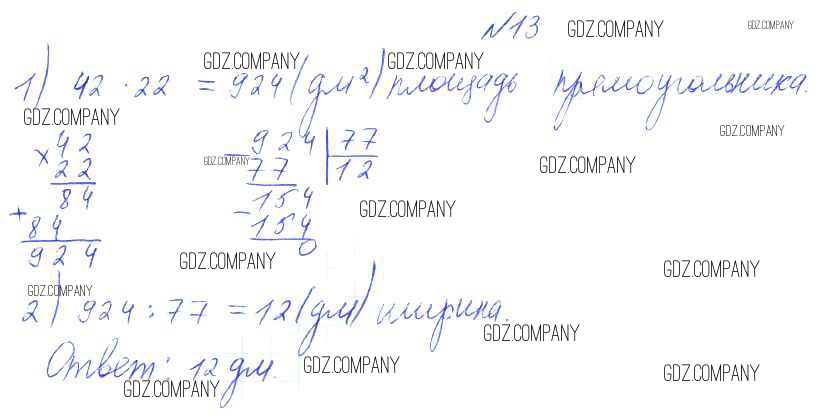 №13 GDZ.COMPANY GDZ.COMPANY
GDZ.COMPANY GDZ.COMPANY
1) 42 · 22 = 924 (дм²) площадь прямоугольника.
GDZ.COMPANY GDZ.COMPANY
× 42 − 924 | 77
22 GDZ.COMPANY 77 12 GDZ.COMPANY
84 154
+ 84 − 154 GDZ.COMPANY
924 0
GDZ.COMPANY GDZ.COMPANY
GDZ.COMPANY
2) 924 : 77 = 12 (дм) ширина.
GDZ.COMPANY
Ответ: 12 дм. GDZ.COMPANY GDZ.COMPANY
GDZ.COMPANY